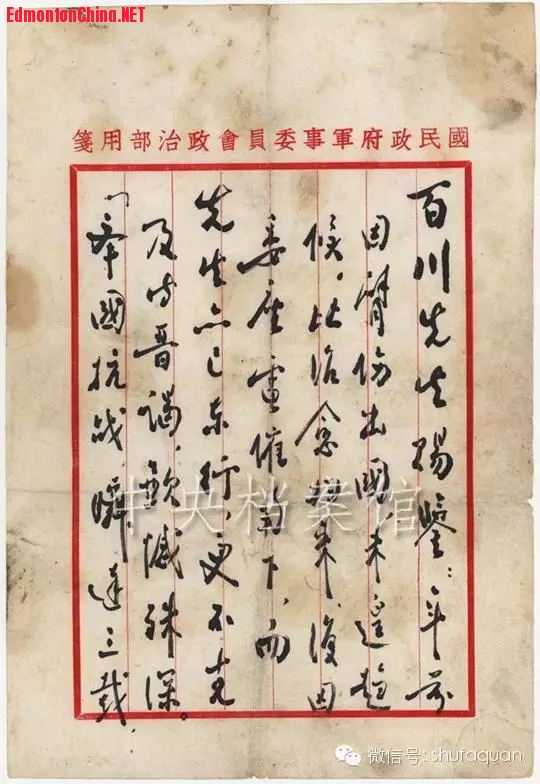 EdmontonChina.NET
國民政府軍事委員會政治部用箋
百川先生賜鑒：年前
因臂傷出國，未遑趨
候，比治愈歸來，復因
委座電催南下，而
先生亦已東行，更不克
及時晉謁，歉憾殊深。
「舉國抗战，瞬達三載，
中央档案馆
微信号: shufaquan